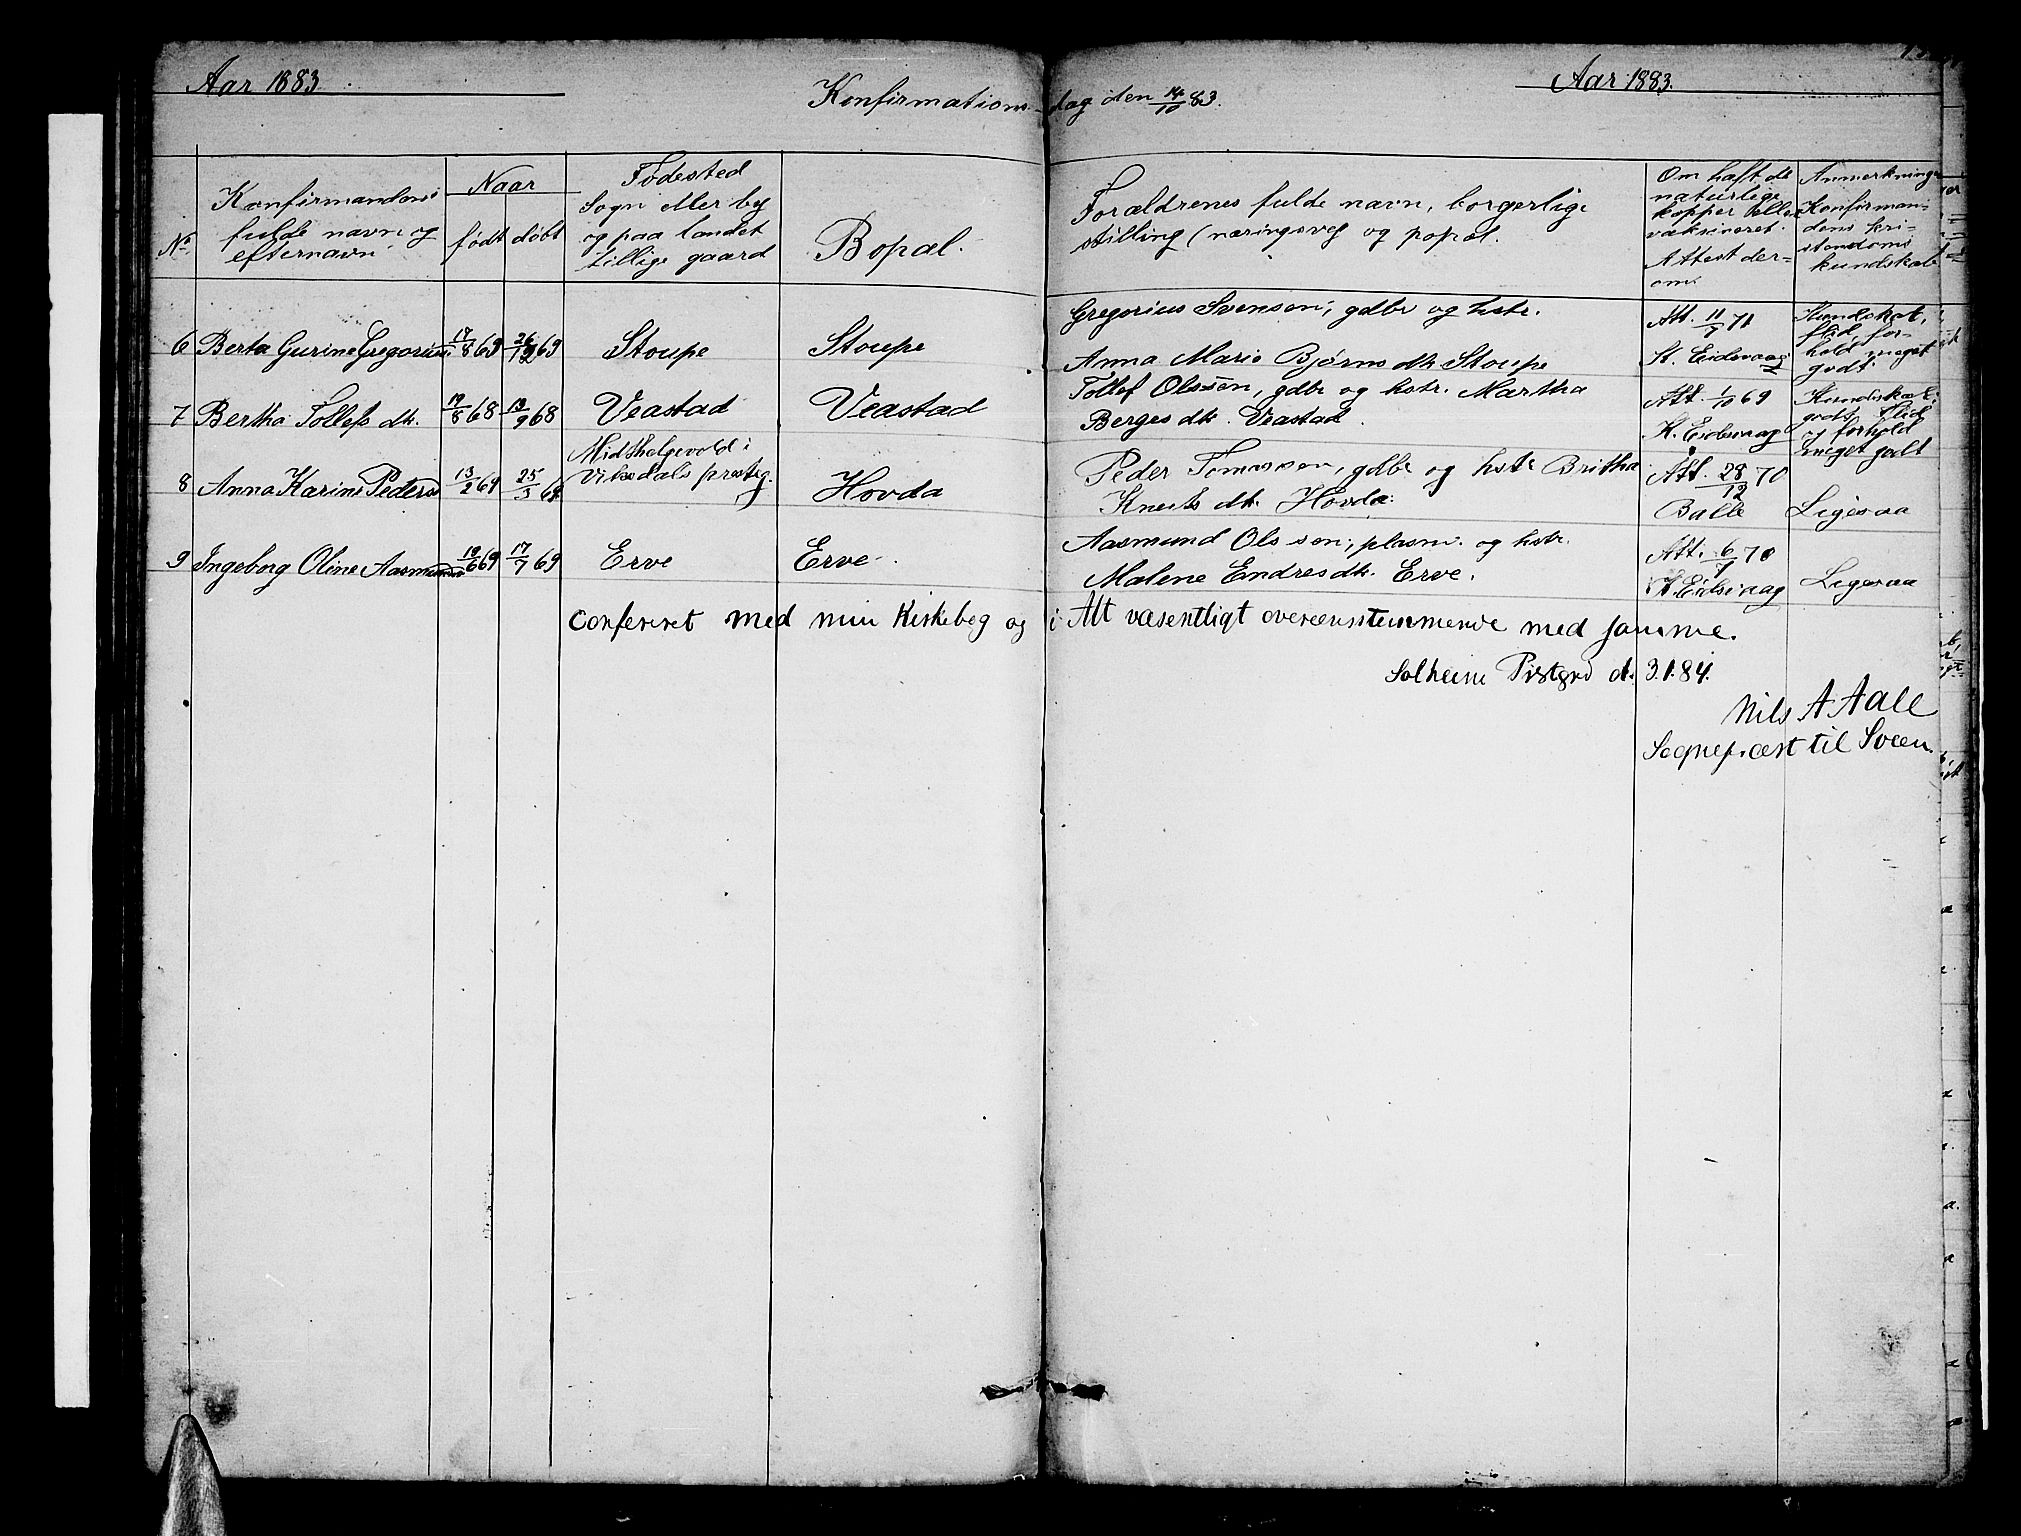 Aar 1883.
Aar 1883.
Konfirmationsdag den 14/10 83.
No.
Konfirmandens
fulde navn og
efternavn
Naar
født døbt
Fødested
Sogn eller by
og paa landet
tillige gaard
Bopæl.
Forældrenes fulde navn, borgerlige
stilling (næringsveg og popæl.
Om haft de
naturlige
kopper eller
vaksineret.
Attest der=
om.
Anmerkninger
Konfirman-
dens kri-
stendoms
kundskab
6 Berta Gurine Gregorius 17/8 69 26/12 69 Stoupe Stoupe
Gregorius Svensen, gdbr og hstr.
Anna Marie Bjørnsdtr. Stoupe
Att. 11/9 71
K. Eidsvaag
Kundskab,
flid, for-
hold meget
godt.
7 Bertha Tollefsdtr. 19/8 68 13/9 68 Veastad Veastad
Tollef Olssen, gdbr og hstr. Martha
Berges dtr. Veastad.
Att. 1/10 69
K. Eidsvaag
Kundskab
godt flid
og forhold
meget godt
8 Anna Karine Peders 13/2 69 25/3 69 Midthelgevold i
Viksdals præsteg. Hovda
Peder Tomassen, gdbr og hstr Britha
Knuts dtr. Hovda.
Att. 28/12 70
Balle
Ligesaa
9 Ingeborg Oline Aasmunds 19/6 69 17/7 69 Erve Erve
Aasmund Olssen, plasm. og hstr.
Malene Endresdtr. Erve.
Att. 6/7 70
K. Eidsvaag
Ligesaa
Confereret med min Kirkebog og i Alt væsentligt overensstemmende med samme.
Solheim Præstgrd d. 3.1.84.
Nils A Aall
Sognepræst til Sveen.